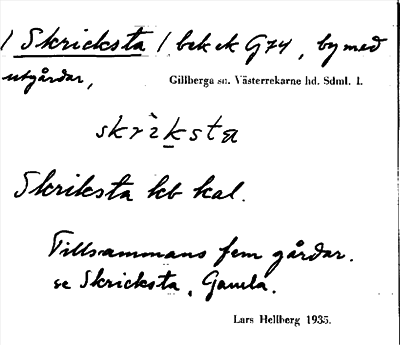 / Skricksta / bek ek G74, by med
utgårdar,
Gillberga sn. Västerrekarne hd. Sdml. l.
skrìksta
Skriksta kb kal.
Tillsammans fem gårdar.
se Skricksta, Gamla.
Lars Hellberg 1935.